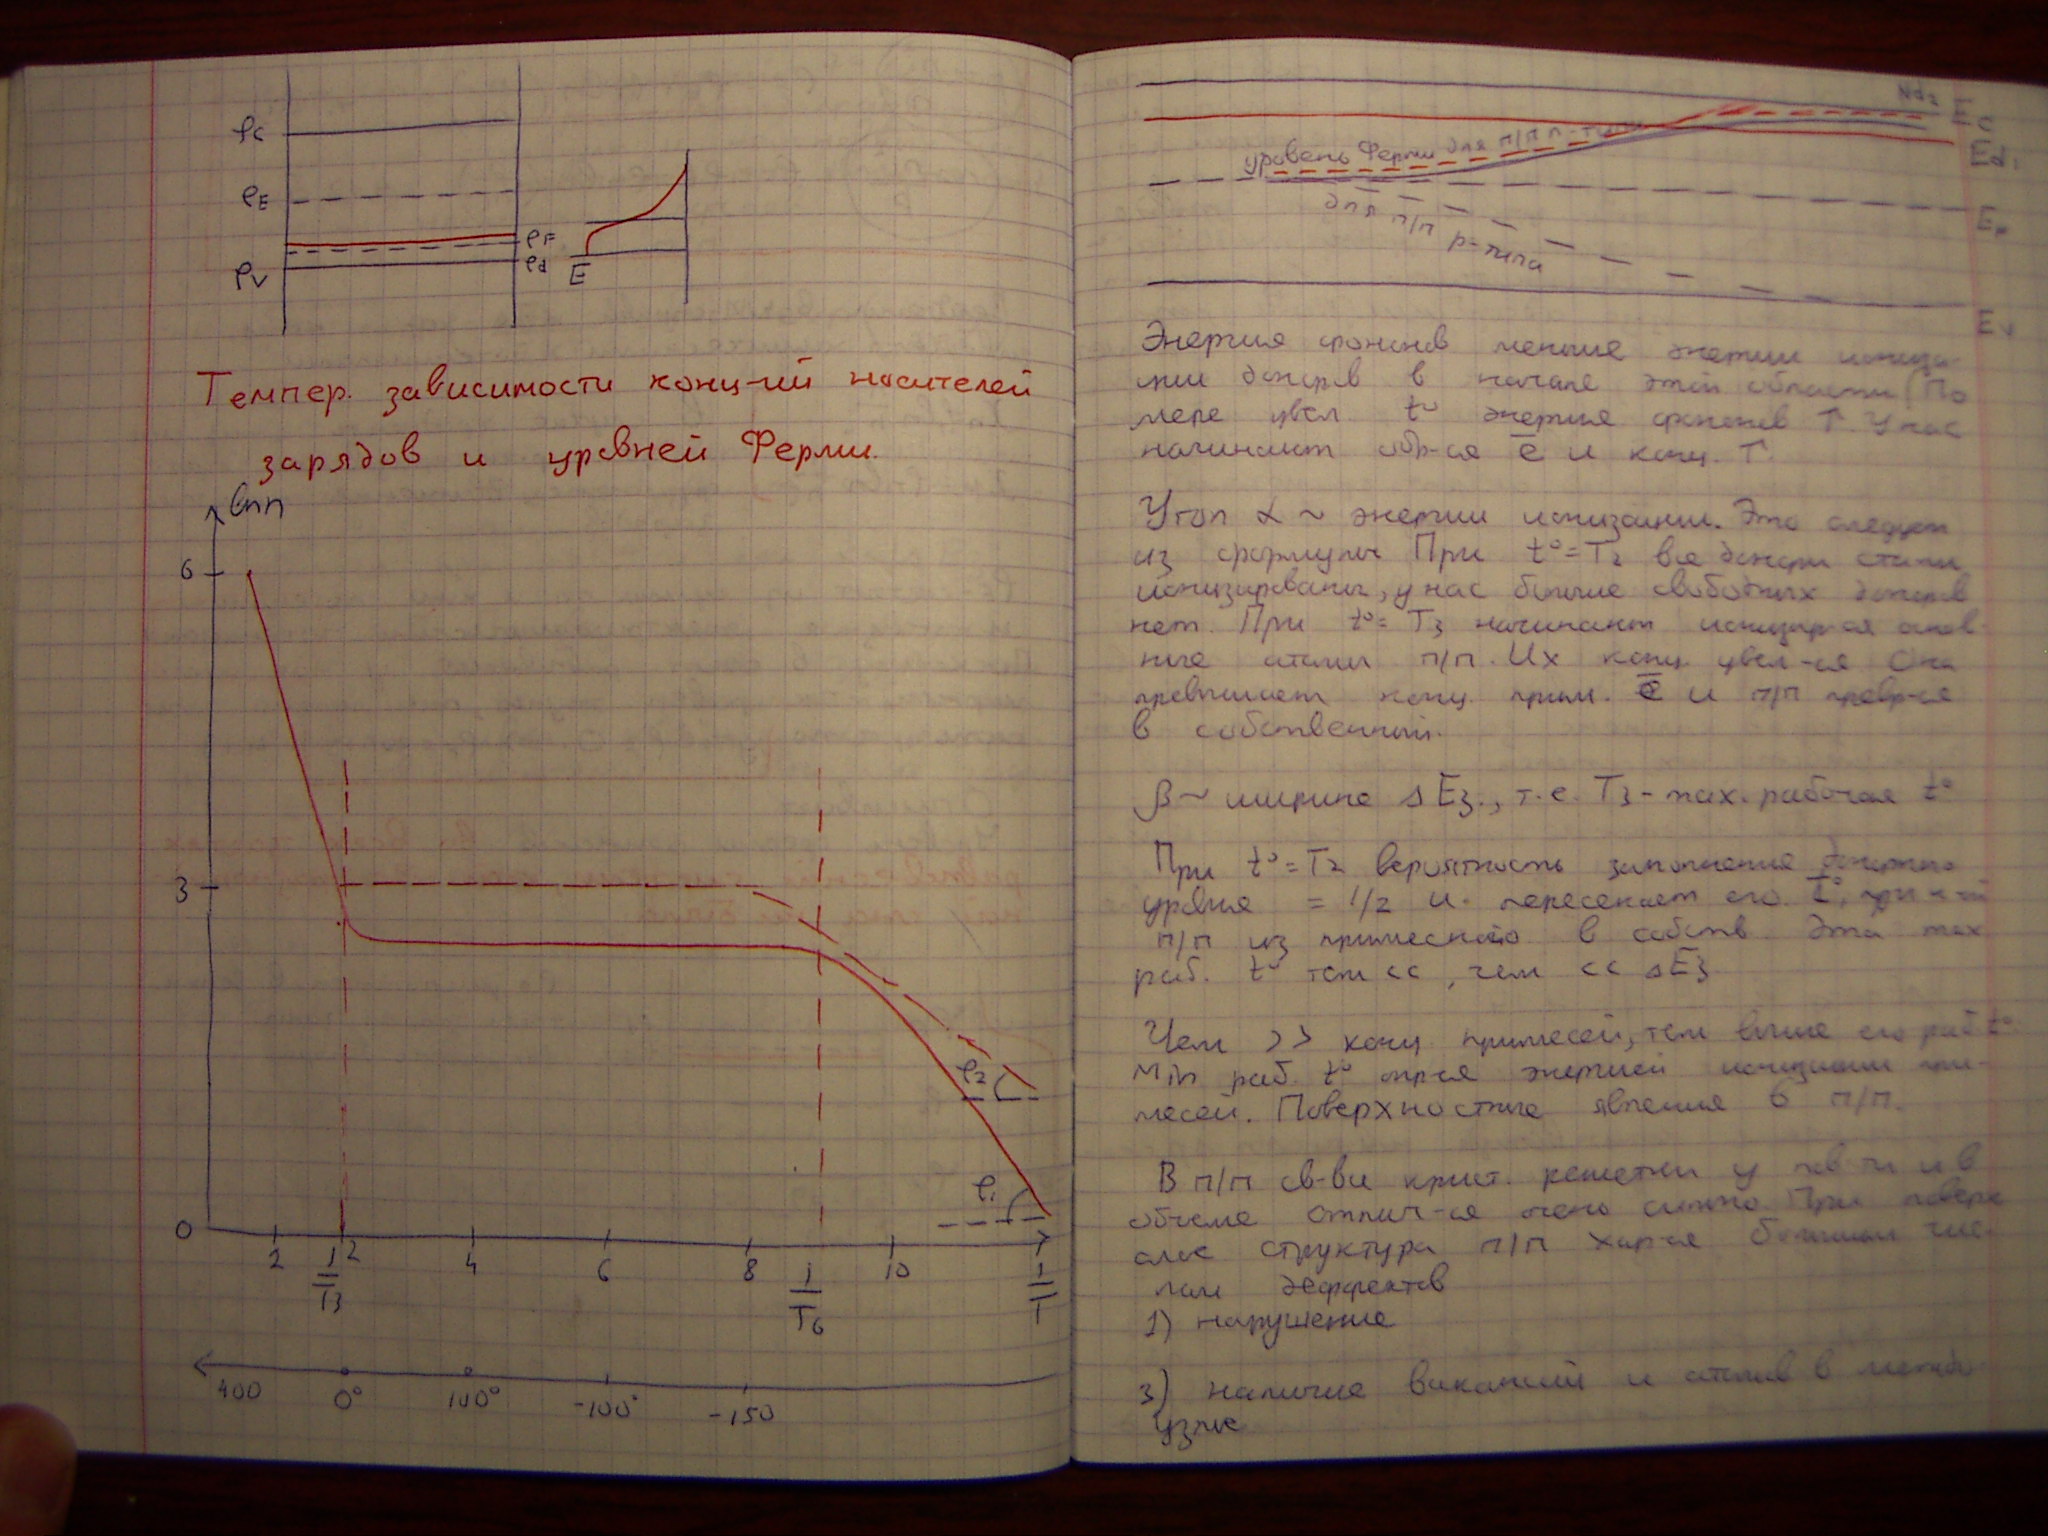 φc
φE
φF
φd
φv
E
Темпер. зависимости конц-ий носителей
зарядов и уровней Ферми.
ln n
6
3
0
φ2
φ1
2
1/T3
2
4
6
8
1/T6
10
1/T
400
0°
100°
-100°
-150
Nd2
Ec
Ed1
уровень Ферми для п/п n-типа
для п/п p-типа
Ev
Энергия фононов меньше энергии иониза-
ции доноров в начале этой области (По
мере увел. t° энергия фононов ↑. У нас
начинают обр-ся ē и конц. ↑.
Угол α ~ энергии ионизации. Это следует
из формулы При t°=T2 все доноры стали
ионизированы, у нас больше свободных доноров
нет. При t°= T3 начинают ионизир-ся основ-
ные атомы п/п. Их конц. увел-ся Она
превышает конц. прим. ē и п/п превр-ся
в собственный.
β ~ ширине ΔEз., т.е. T3 - max. рабочая t°
При t°=T2 вероятность заполнения донорного
уровня = 1/2 и пересекает его. t°, при к-ой
п/п из примесного в собств. Эта max
раб. t° тем <<, чем << ΔEз
Чем >> конц. примесей, тем выше его раб t°
Min раб. t° опр-ся энергией ионизации при-
месей. Поверхностные явления в п/п.
В п/п св-ва крист. решетки у пов-ти и в
объеме отлич-ся очень сильно. При поверх
слое структура п/п хар-ся большим чис-
лом дефектов
1) нарушение
3) наличие вакансий и атомов в между
узлие